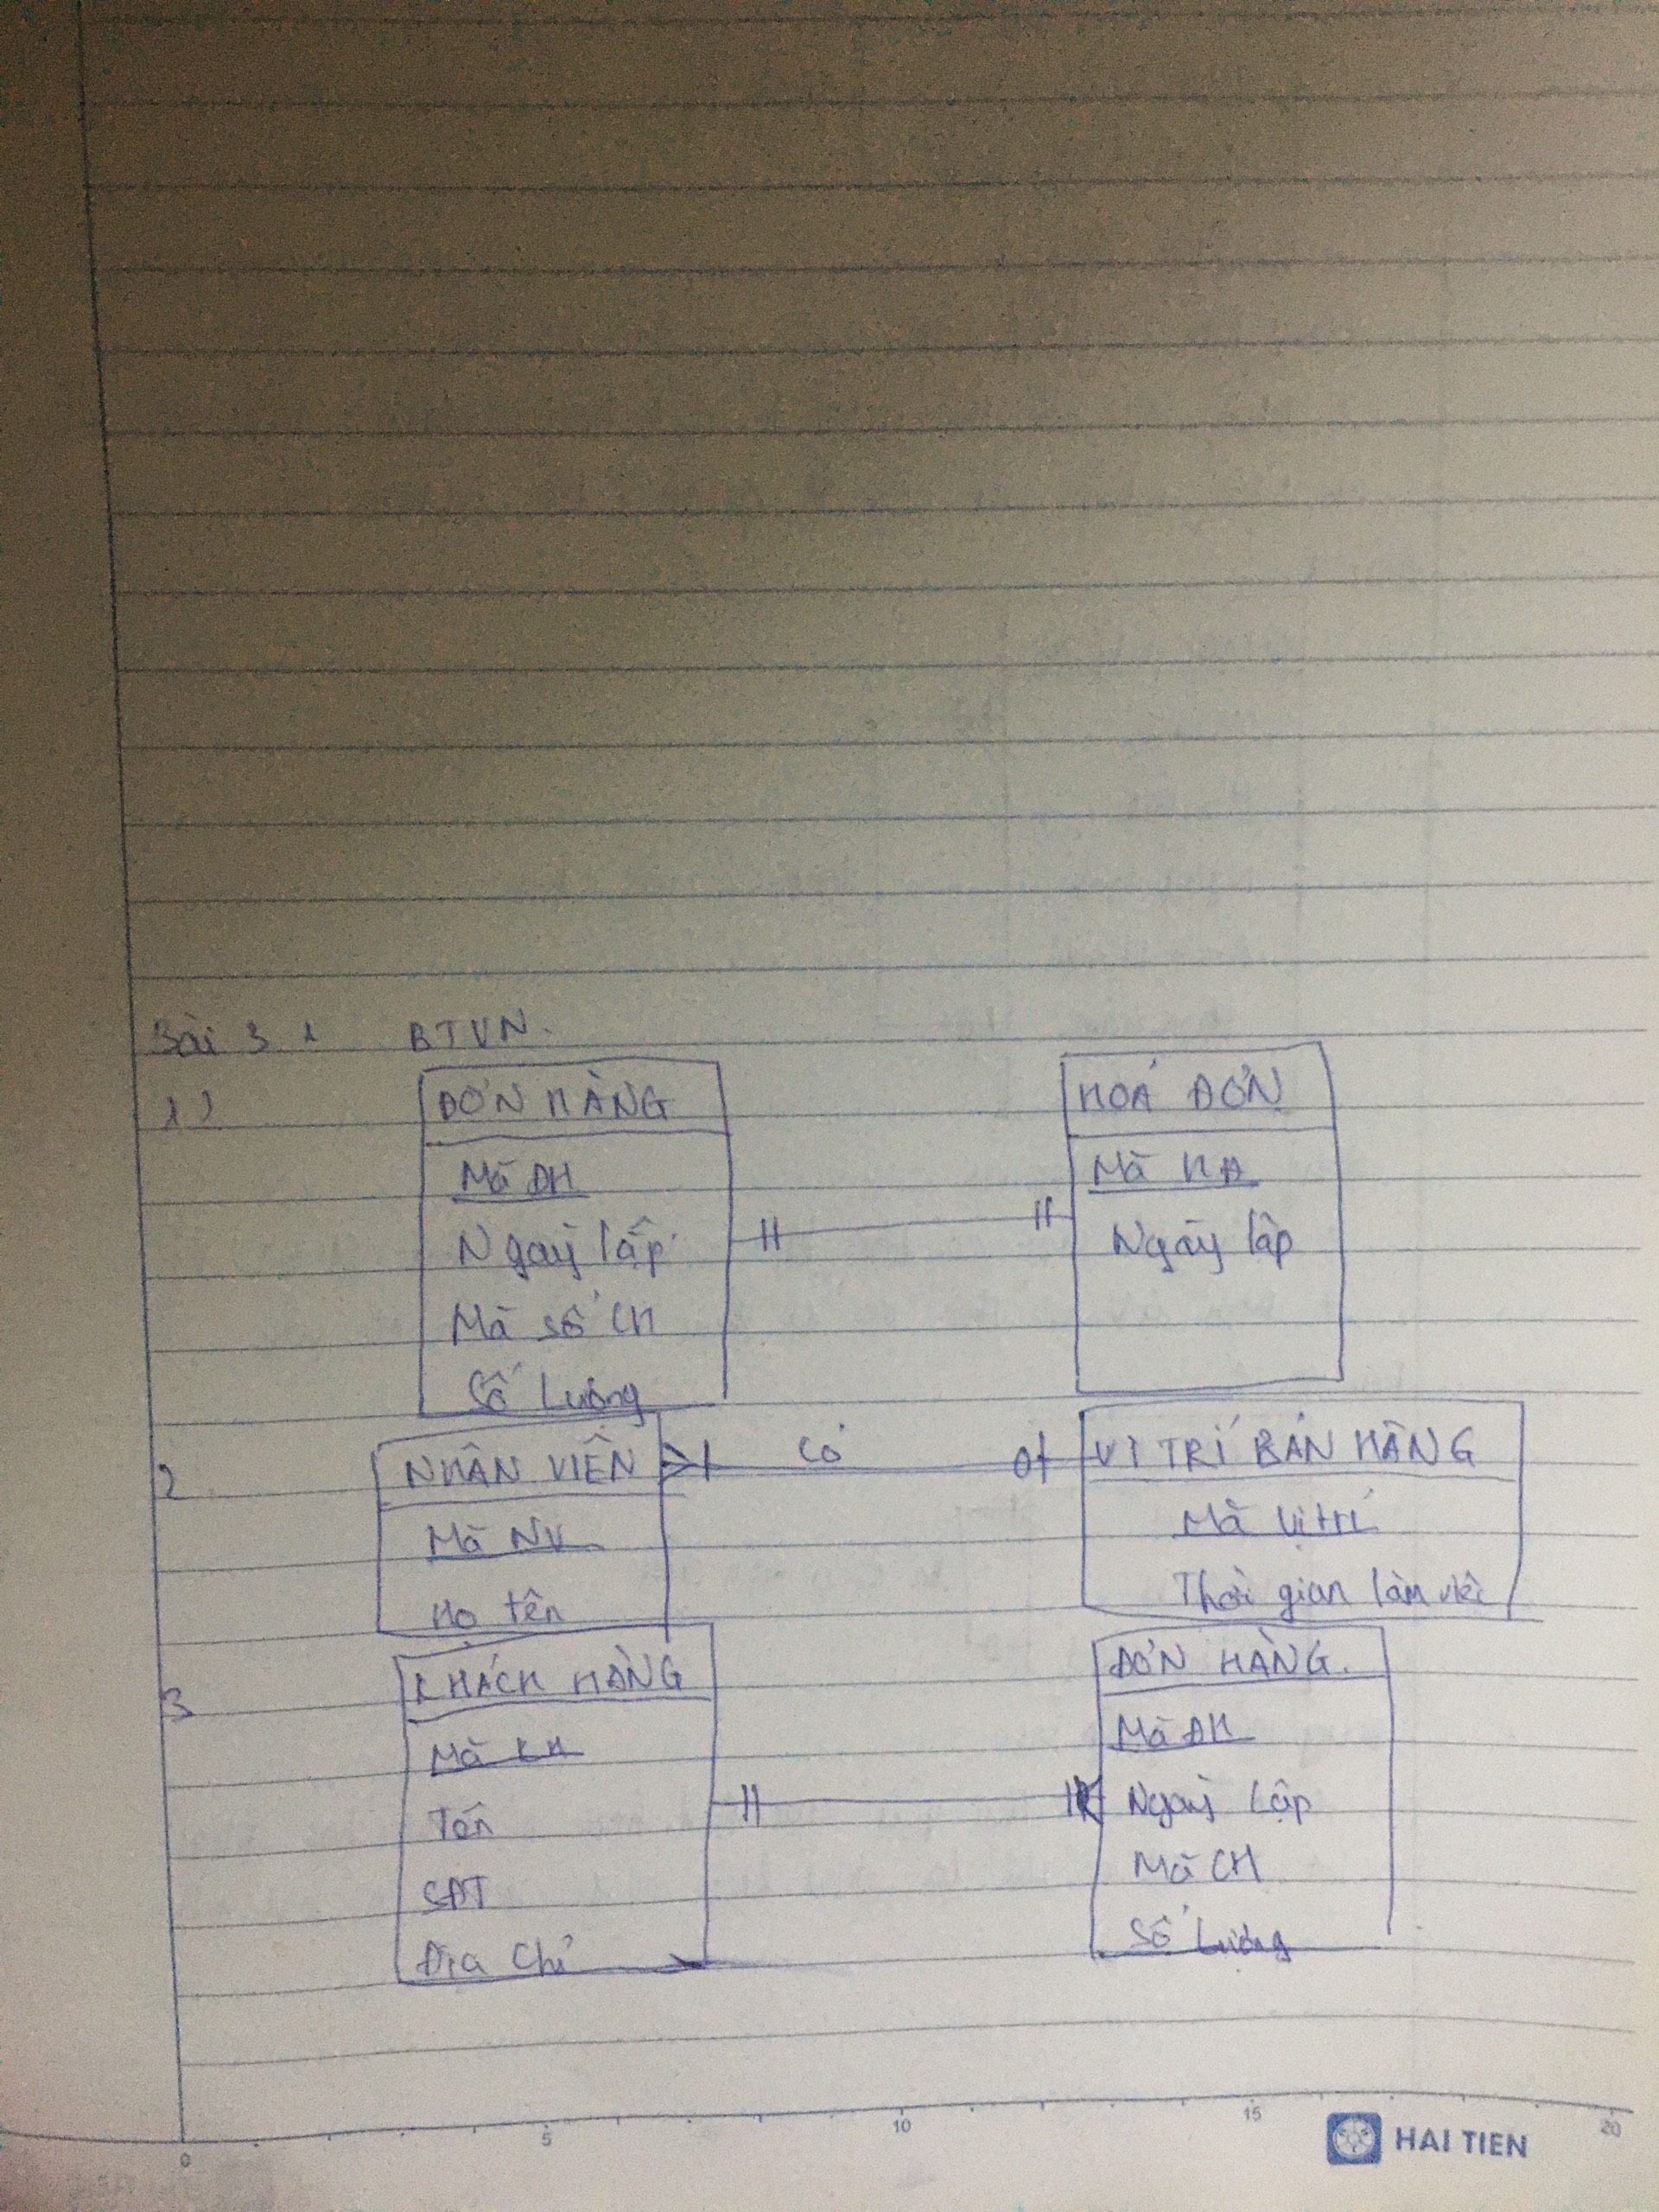 Bài 3 : BTVN.
1)
ĐƠN HÀNG
Mã ĐH
Ngày lập
Mã số CH
Số Lượng
HOÁ ĐƠN
Mã HĐ
Ngày lập
2
NHÂN VIÊN
Mã NV
Họ tên
Có
VỊ TRÍ BÁN HÀNG
Mã Vị trí
Thời gian làm việc
3
KHÁCH HÀNG
Mã KH
Tên
SĐT
Địa Chỉ
ĐƠN HÀNG.
Mã ĐH
Ngày Lập
Mã CH
Số Lượng
0 5 10 15 20
HAI TIEN